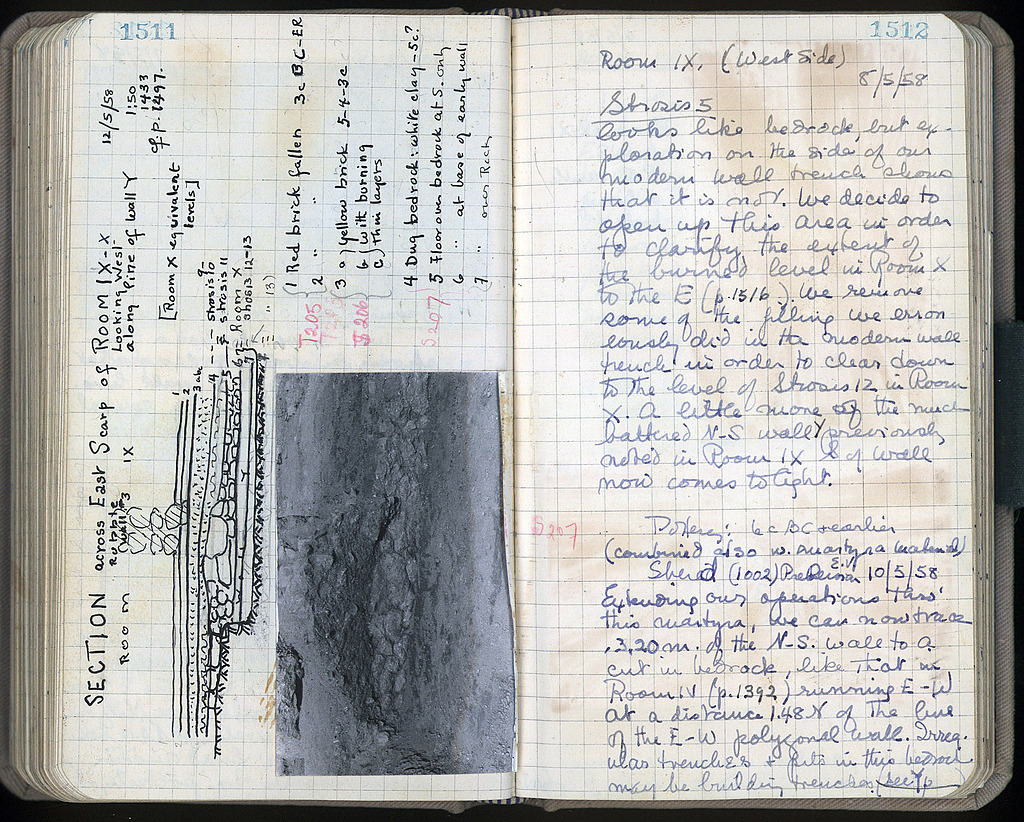 1511
SECTION across East Scarp of ROOM IX-X
Looking West
along line of wall Y
12/5/58
1:50
1433
cf. p. 1497.
[Room X equivalent
levels]
rubble
wall 3
ROOM IX
1
2
3 abc
4 --- strosis 10
5 = strosis 11
6 = Room X
7 = strosis 12-13
" 13)
1 Red brick fallen 3c BC-ER
2 " "
3 a) yellow brick 5-4-3c
b) with burning
c) thin layers
4 Dug bedrock: white clay - 5c?
5 Floor over bedrock at S. only
6 " at base of early wall
7 " over Rock
Y
5205
5206
5207
1512
Room IX, (West Side)
8/5/58
Strosis 5
looks like bedrock, but ex-
ploration on the side of our
modern wall trench shows
that it is not. We decide to
open up this area in order
to clarify the extent of
the burned level in Room X
to the E (p. 1516). We remove
some of the filling we erron
eously did in the modern wall
trench in order to clear down
to the level of Strosis 12 in Room
X. A little more of the much
battered N-S wall Y previously
noted in Room IX S of wall
now comes to light.
5207
Pottery: 6c BC + earlier
(combined also w. martyra material)
Sherd (1002) 10/5/58
Extending our operations thro'
this martyra, we can now trace
3.20 m. of the N-S. wall to a
cut in bedrock, like that in
Room IV (p. 1392) running E-W
at a distance 1.48 N of the line
of the E-W polygonal wall. Irreg-
ular trenches + pits in this bedrock
may be building trenches (see p